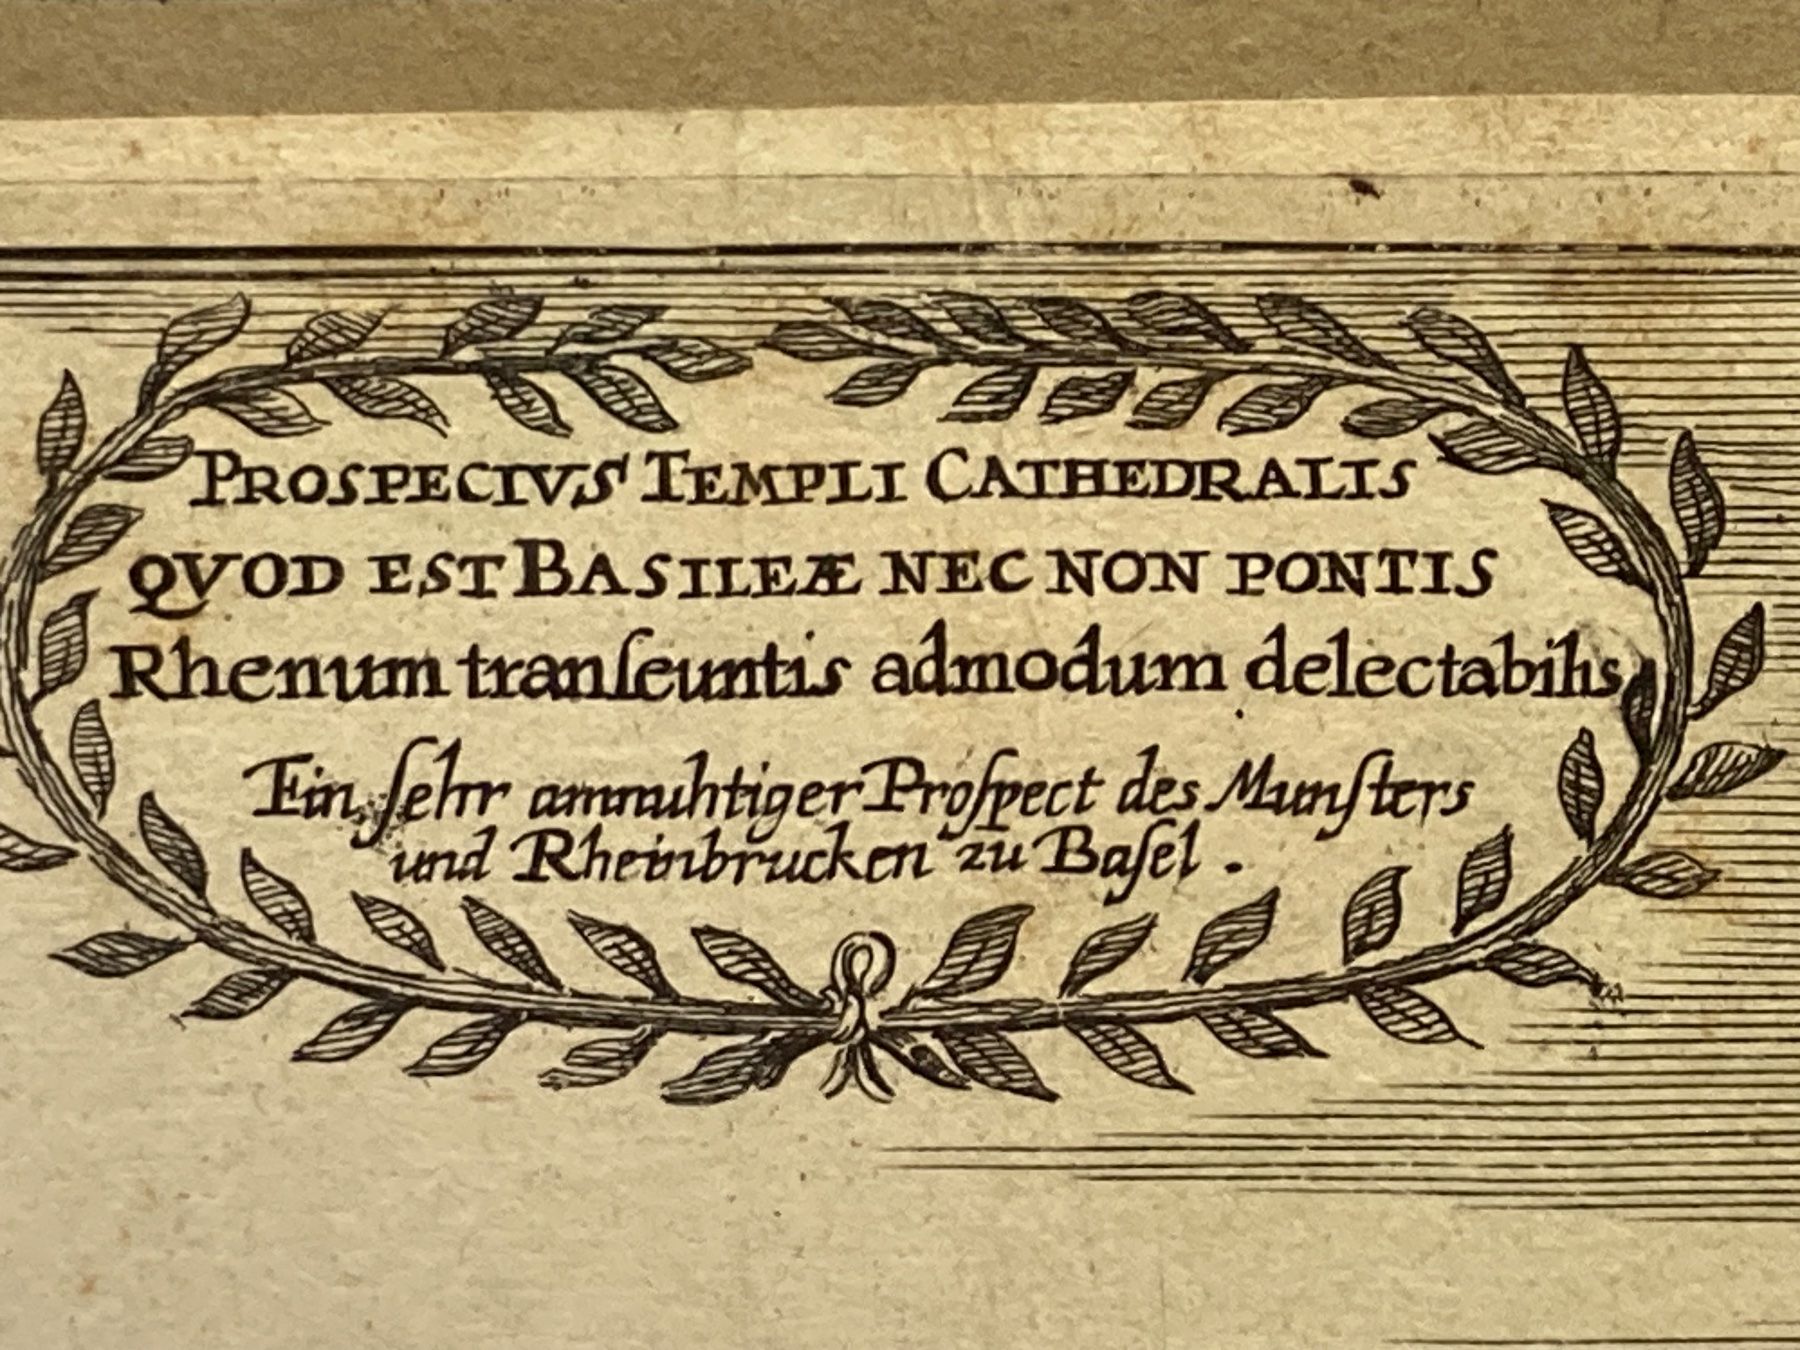 PROSPECTVS TEMPLI CATHEDRALIS
QVOD EST BASILEÆ NEC NON PONTIS
Rhenum tranſeuntis admodum delectabilis
Ein ſehr anmuhtiger Proſpect des Munſters
und Rheinbrucken zu Baſel .